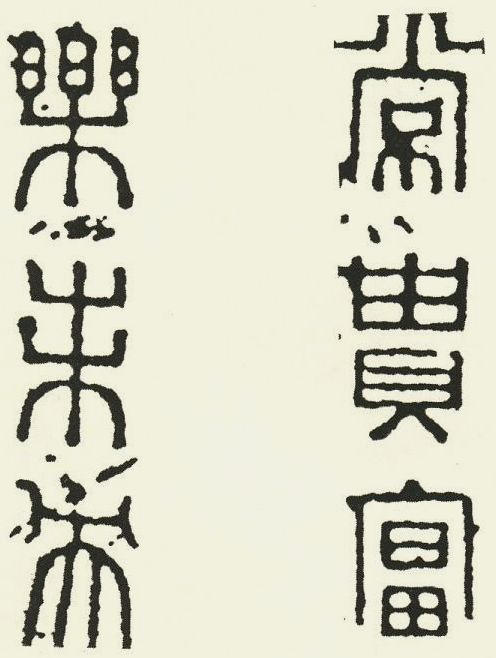 常貴富
樂未央